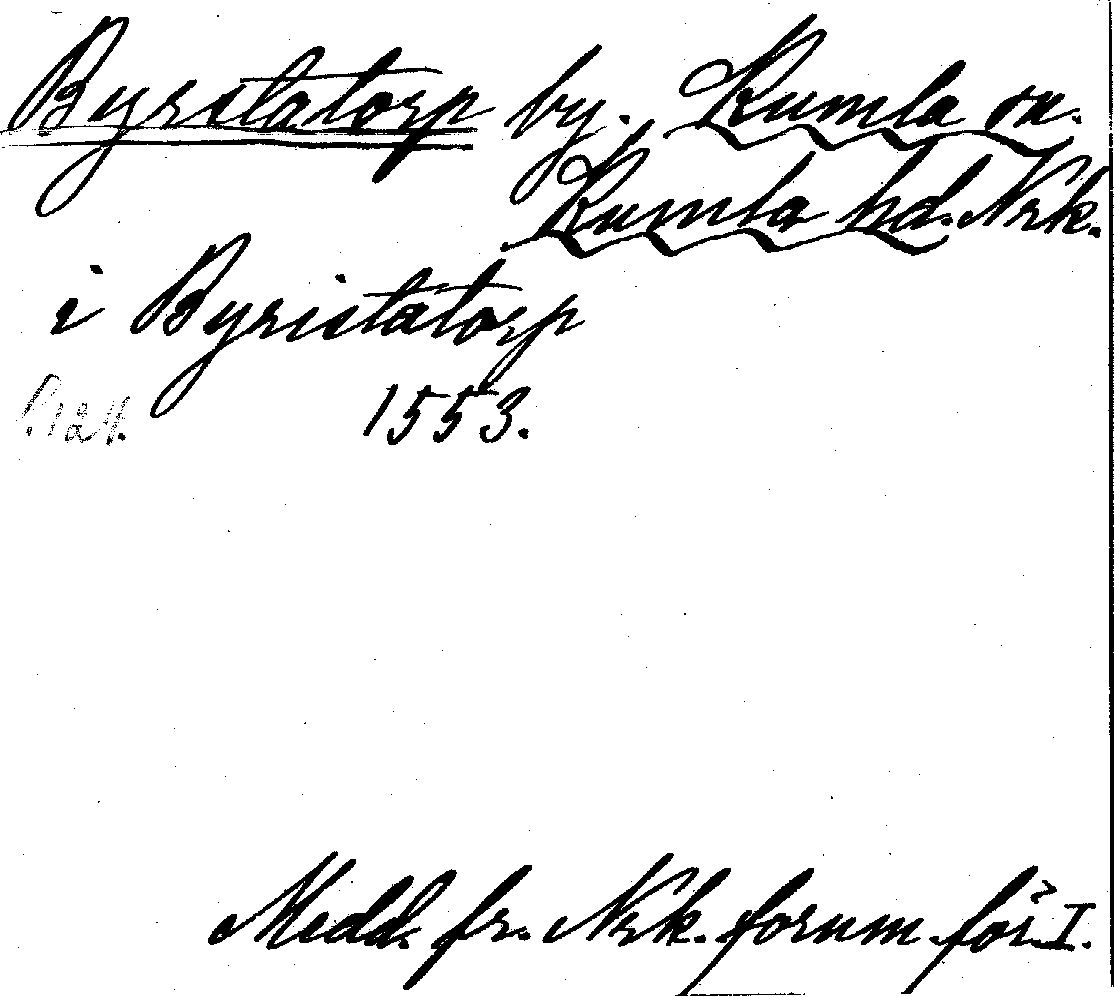 Byrstatorp by. Kumla sn.
Kumla hd. Nrk.
i Byristatorp
P. 124. 1553.
Medd. fr. Nrk. fornm. för. I.